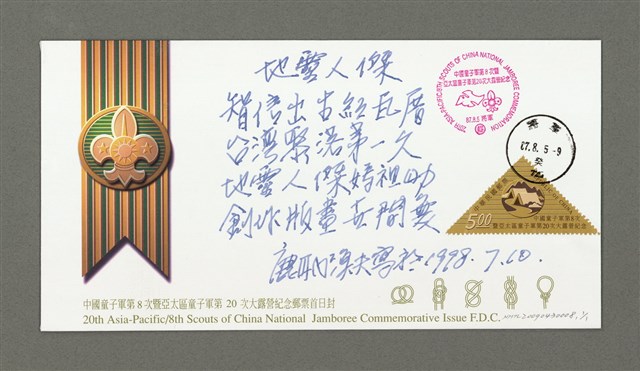 地靈人傑
智信出古紅瓦厝
台灣聚落第一久
地靈人傑媽祖助
創作版畫世間
鹿 漁夫寫於1998.7.10.
20TH ASIA-PACIFIC/8TH SCOUTS OF CHINA NATIONAL JAMBOREE COMMEMORATION
中國童子軍第8次暨
亞太區童子軍第20次大露營紀念
87.8.5
87.8.5-9
5.00
中國童子軍第8次
暨亞太區童子軍第20次大露營紀念
中國童子軍第8次暨亞太區童子軍第 20 次大露營紀念郵票首日封
20th Asia-Pacific/8th Scouts of China National Jamboree Commemorative Issue F.D.C.